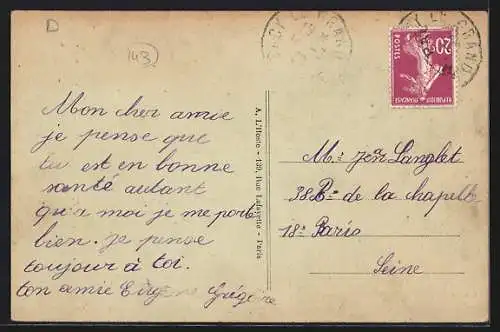 D
143
Mon cher amie
je pense que
tu est en bonne
santé autant
qu'a moi je me porte
bien. je pense
toujour à toi.
ton amie Grégoire
A. L'Hoste - 139, Rue Lafayette - Paris
20c
POSTES
REPUBLIQUE FRANÇAISE
LE GRAND
Langlet
38 Bd de la chapelle
18e Paris
Seine